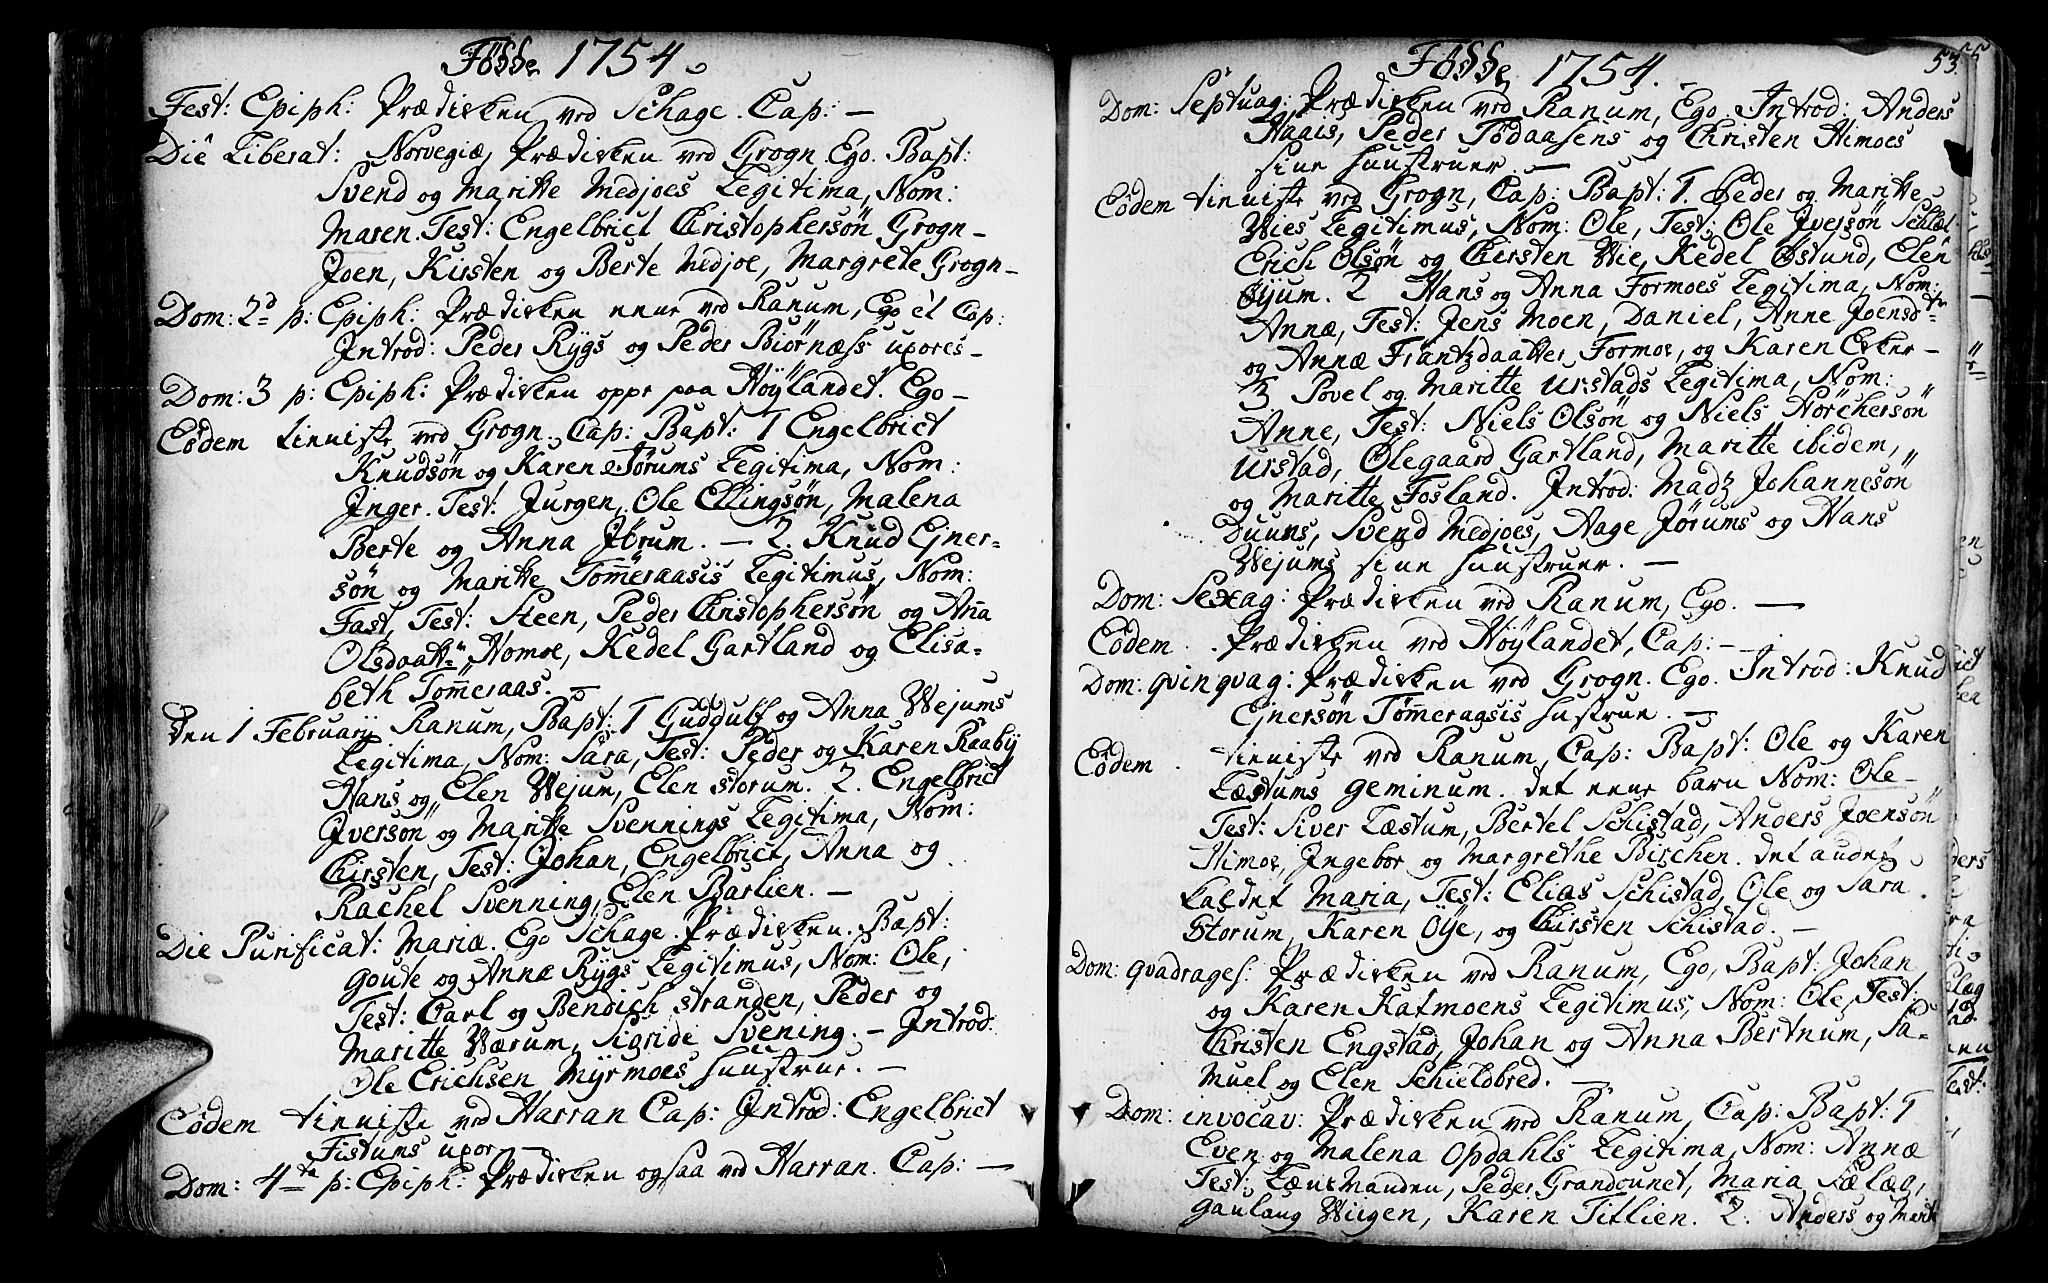 Fosse 1754
Fest: Epiph: Prædicken ved Schage. Cap: —
Die Liberat: Norvegiæ, Prædicken ved Grogn. Ego. Bapt:
Svend og Maritte Medjoes Legitima, Nom:
Maren. Test: Engelbrict Christophersøn Grogn-
Joen, Kirsten og Berte Medjoe, Margrete Grogn-
Dom: 2d p: Epiph: Prædicken nene ved Ranum, Ego et Cap:
Introd: Peder Rygs og Peder Biørnæss uxores-
Dom: 3 p: Epiph: Prædicken oppe paa Høylandet. Ego-
Eodem tienniste ved Grogn. Cap: Bapt: 1 Engelbrict
Knudsøn og Karen Jørums Legitima, Nom:
Inger. Test: Jurgen, Ole Ellingsøn, Malena
Berte og Anna Jørum. — 2. Knud Ejner-
søn og Maritte Tømmeraasis Legitimus, Nom:
Fast, Test: Steen, Peder Christophersøn og Anna
Olsdaatt Homoe, Kedel Gartland og Elisa-
beth Tømmeraas. —
Den 1 Februarij Ranum, Bapt: 1 Guddulf og Anna Wejums
Legitima, Nom: Sara, Test: Peder og Karen Raaby
Hans og Elen Wejum, Elen Storum. 2. Engelbrict
Iversøn og Maritte Svennings Legitima, Nom:
Chirsten, Test: Johan, Engelbrict, Anna og
Rachel Svenning, Elen Barlien. —
Die Purificat: Mariæ. Ego Schage. Prædicken. Bapt:
Goute og Annæ Rygs Legitimus, Nom: Ole,
Test: Carl og Bendich Stranden, Peder og
Maritte Wærum, Sigride Svening. — Introd:
Ole Erichsen Myrmoes huustrue. —
Eodem tienniste ved Harran Cap: Introd: Engelbrict
Fistums uxor —
Dom: 4ta p: Epiph: Prædicken ogsaa ved Harran. Cap: —
Fosse 1754.
53
Dom: Septuag: Prædicken ved Ranum, Ego. Introd: Anders
Haais, Peder Tødaasens og Christen Himoes
sine huustruer. —
Eodem tienniste ved Grogn, Cap: Bapt: 1. Peder og Maritte
Wies Legitimus, Nom: Ole, Test: Ole Iversøn
Erich Olsøn og Chirsten Wie, Kedel Østund, Elen
Øjum. 2 Hans og Anna Formoes Legitima, Nom:
Annæ, Test: Jens Moen, Daniel, Anne Joensdtr
og Annæ Frantzdaatter Formoe, og Karen Eker-
3 Povel og Maritte Urstads Legitima, Nom:
Anne, Test: Niels Olsøn og Niels Hörchersøn
Urstad, Ølegaard Gartland, Maritte ibidem,
og Maritte Fosland. Introd: Madz Johannesøn
Duuns, Svend Medjoes, Aage Jørums og Hans
Wejums sine huustruer. —
Dom: Sexag: Prædicken ved Ranum, Ego. —
Eodem. Prædicken ved Høylandet, Cap: —
Dom: qvinqvag: Prædicken ved Grogn. Ego. Introd: Knud
Ejnersøn Tømmeraasis hustrue. —
Eodem. tienniste ved Ranum, Cap: Bapt: Ole og Karen
Læstums geminum. det eene barn Nom: Ole-
Test: Siver Læstum, Bertel Schistad, Anders Joensøn
Himoe, Ingebor og Margrethe Birchen. det andet
kaldet Maria, Test: Elias Schistad, Ole og Sara
Storum, Karen Øye, og Chirsten Schistad. —
Dom: qvadrages: Prædicken ved Ranum, Ego, Bapt: Johan
og Karen Katmoens Legitimus, Nom: Ole, Test:
Christen Engstad, Johan og Anna Bertnum, Sa-
muel og Elen Schieldbred. —
Dom: invocav: Prædicken ved Ranum, Cap: Bapt: 1
Even og Malena Opdahls Legitima, Nom: Annæ
Test: Lænsmanden, Peder Grandounet, Maria
Gaulaug Wiigen, Karen Titlien. 2. Anders og Marit